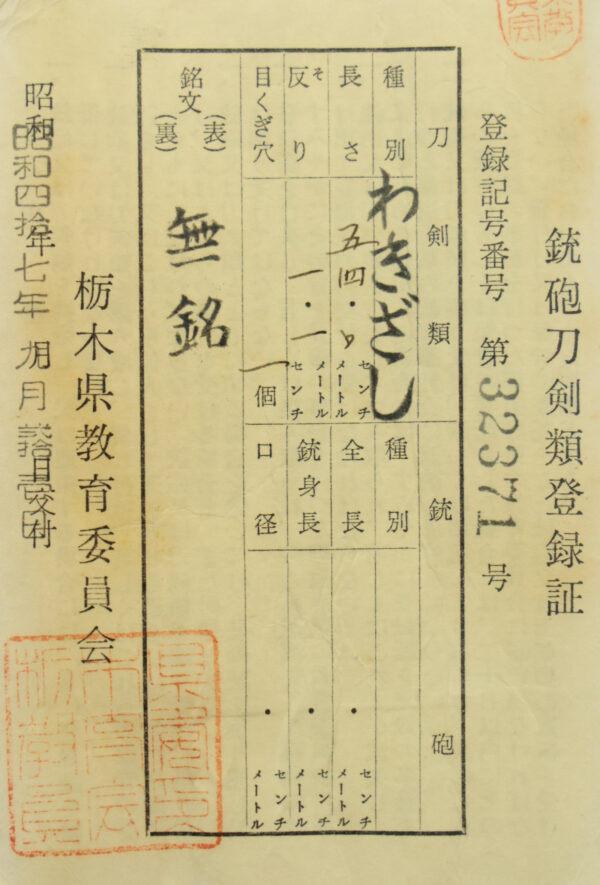 銃砲刀剣類登録証
登録記号番号 第32371号
刀剣類 銃砲
種別 わきざし 種別
長さ 五四・ センチメートル 全長 ・ センチメートル
反り そ 一・一 センチメートル 銃身長 ・ センチメートル
目くぎ穴 一個 口径 ・ センチメートル
銘文 (表) (裏) 無銘
栃木県教育委員会
昭和四拾七年 月 日交付